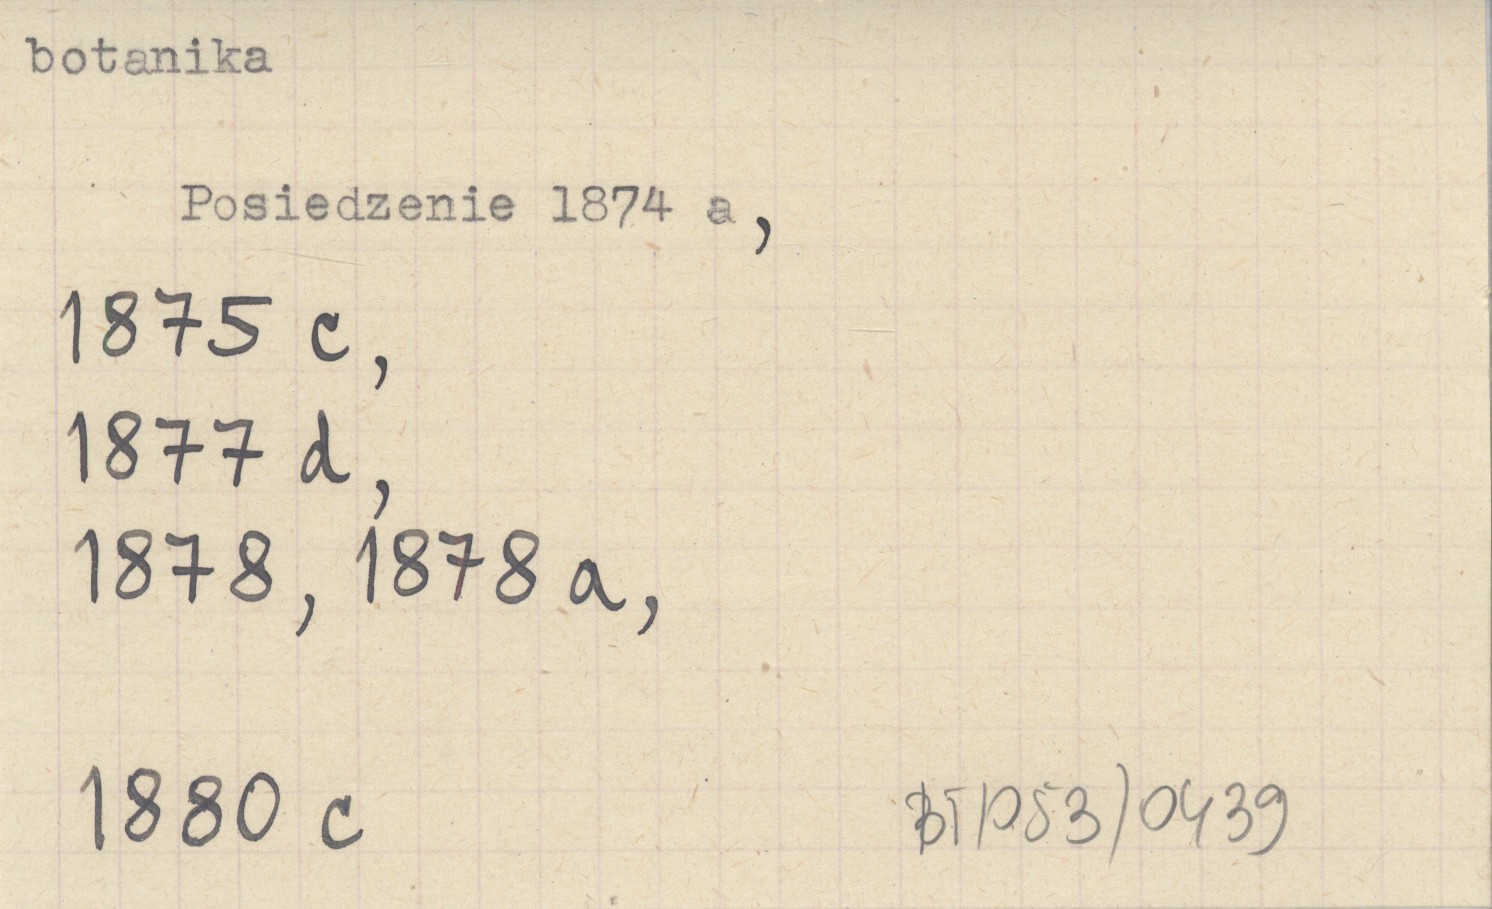 botanika
Posiedzenie 1874 a,
1875 c,
1877 d,
1878, 1878 a,
1880 c
BT/053/0439